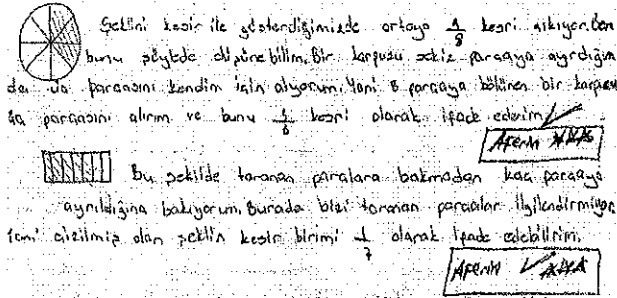 Şeklini kesir ile gösterdiğimizde ortaya 1/8 kesri çıkıyor. Ben
bunu şöylede düşünebilirim. Bir karpuzu sekiz parçaya ayırdığım
da parçasını kendim için alıyorum. Yani 8 parçaya bölünen bir karpuzu
parçasını alırım ve bunu kesri olarak ifade ederim.
Aferin
Bu şekilde taranan paralara bakmadan kaç parçaya
ayrıldığına bakıyorum. Burada bizi taranan parçalar ilgilendirmiyor.
Yani çizilmiş olan şeklin kesir birimi 1/7 olarak ifade edebilirim.
Aferin